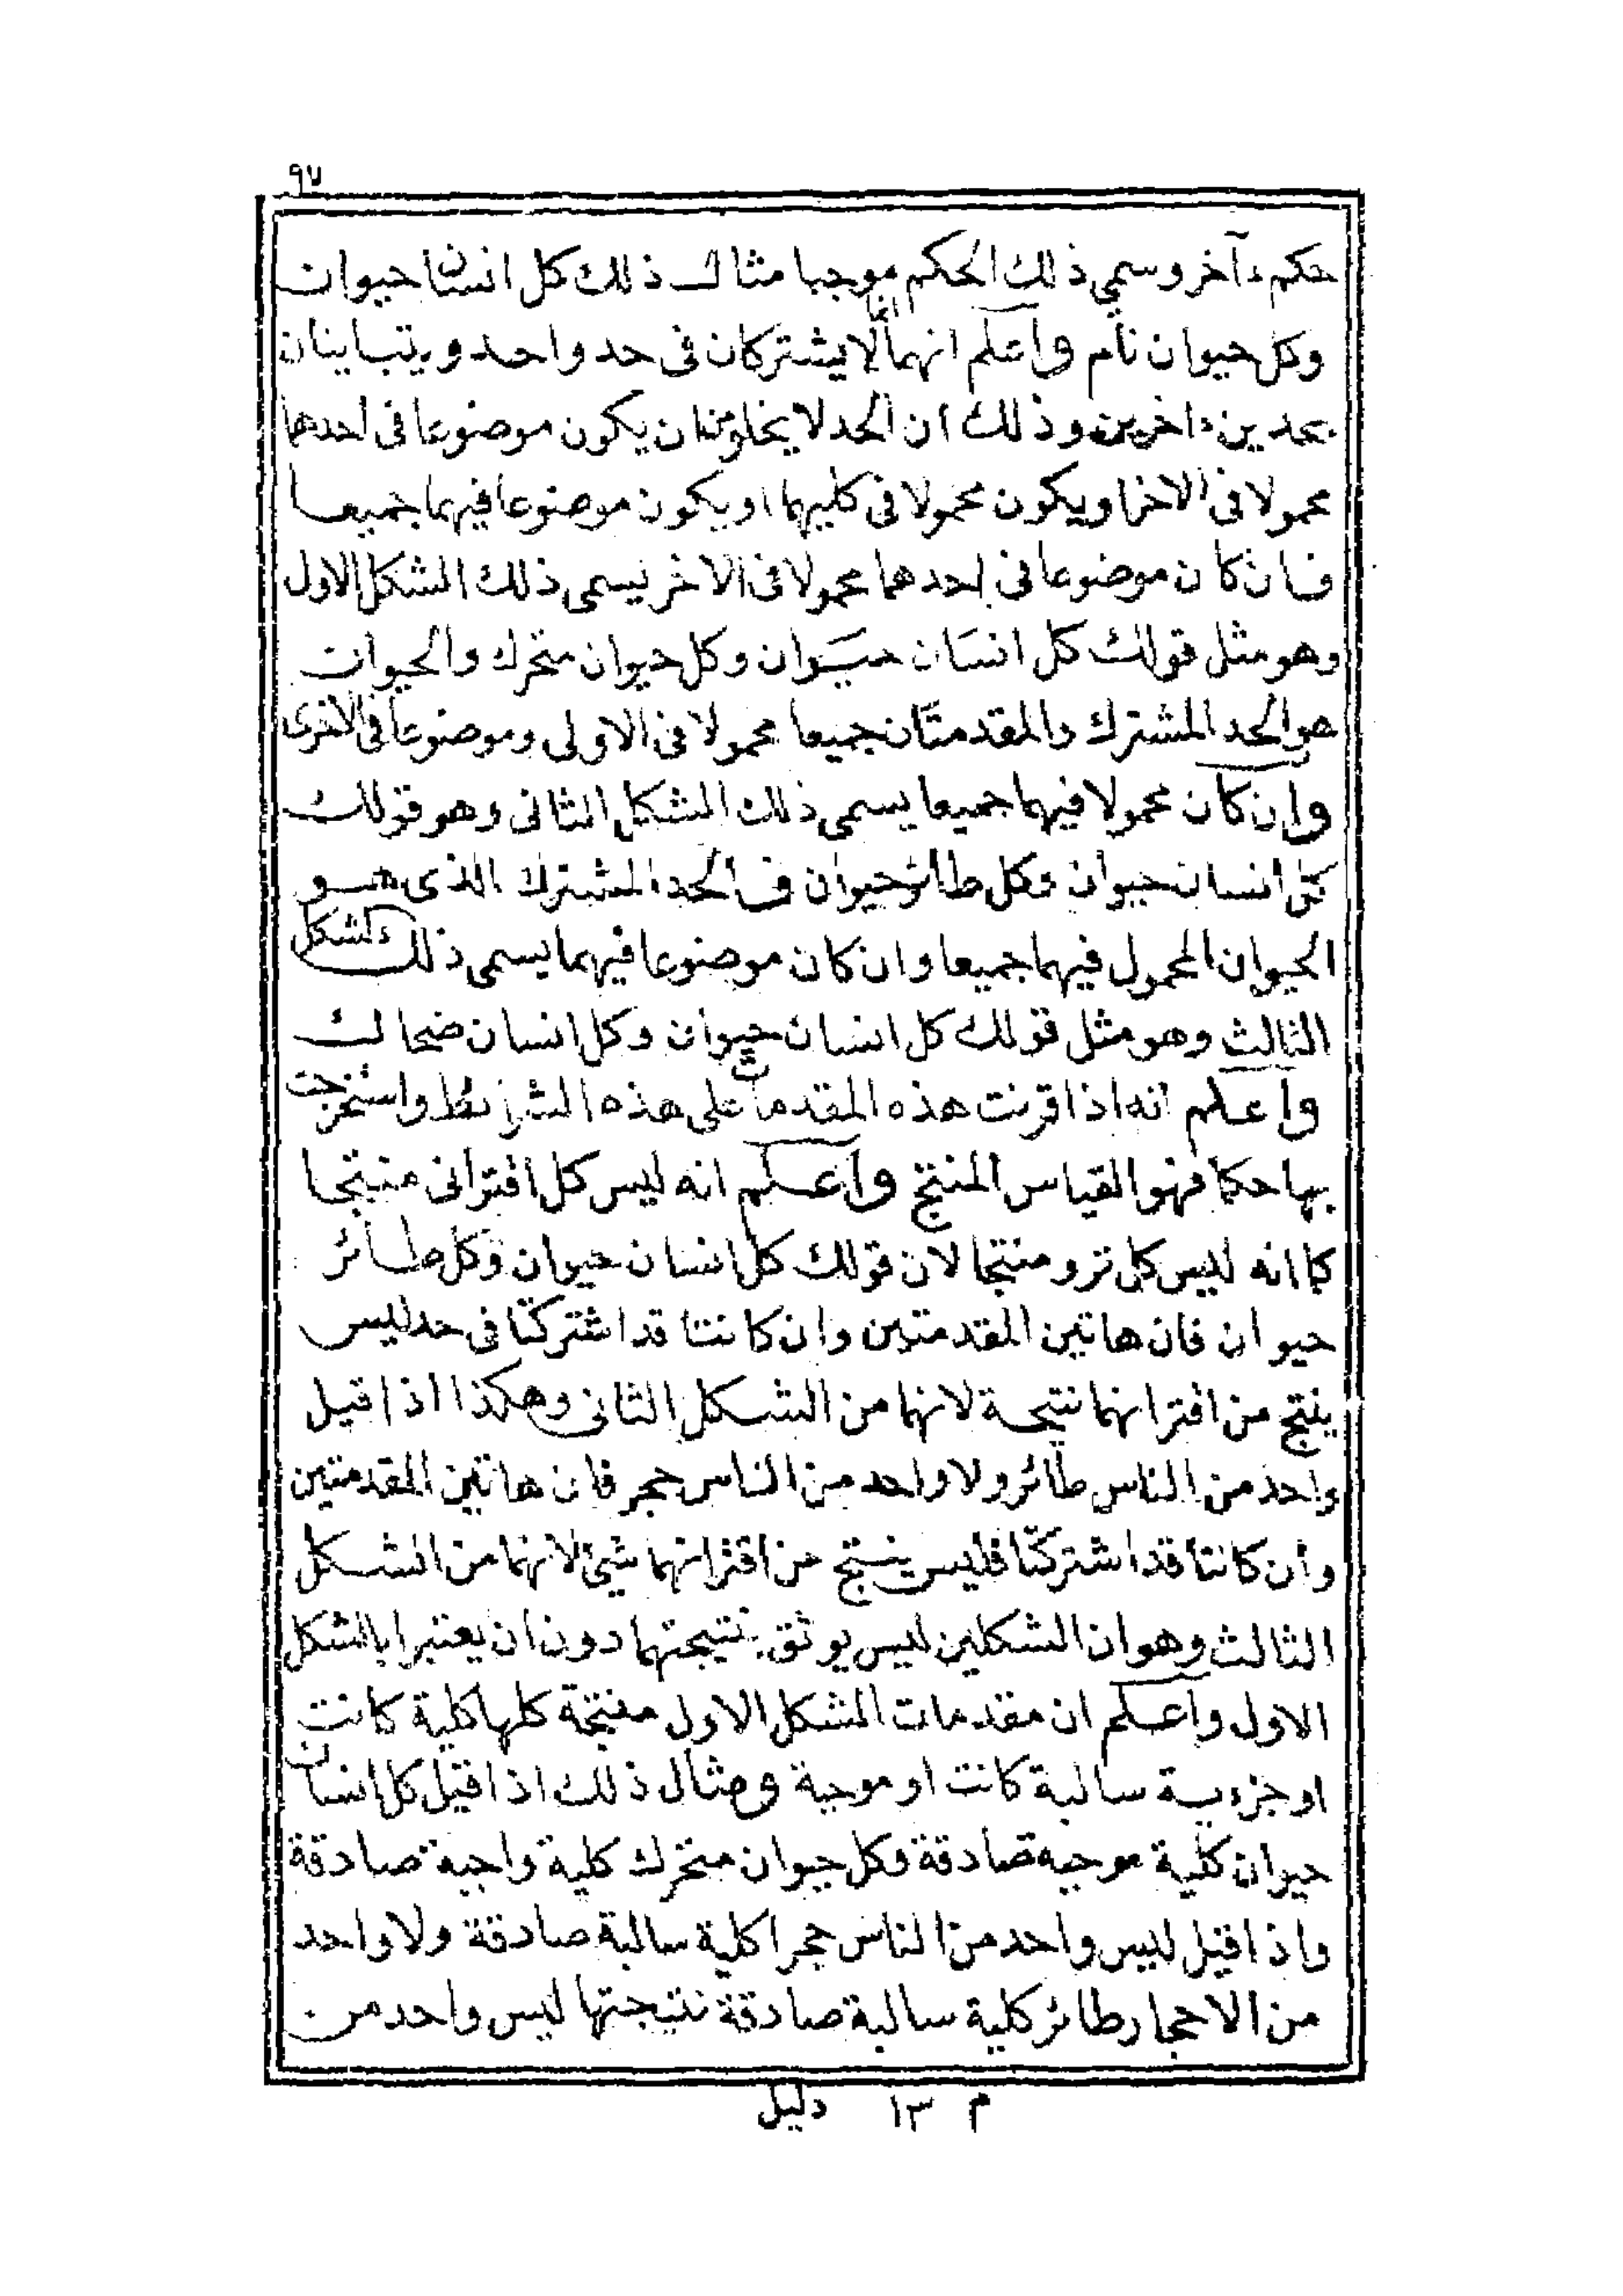 ٩٧
حكم ءآخر وسمي ذلك الحكم موجبا مثال ذلك كل انسان حيوان
وكل حيوان نام واعلم انهما لا يشتركان فى حد واحد ويتباينان
بحدين ءاخرين وذلك ان الحد لا يخلو من ان يكون موضوعا فى احدهما
محمولا فى الاخر او يكون محمولا فى كليهما او يكون موضوعا فيهما جميعا
فان كان موضوعا فى احدهما محمولا فى الاخر يسمى ذلك الشكل الاول
وهو مثل قولك كل انسان حيوان وكل حيوان متحرك والحيوان
هو الحد المشترك والمقدمتان جميعا محمولا فى الاولى وموضوعا فى الاخرى
وان كان محمولا فيهما جميعا يسمى ذلك الشكل الثانى وهو قولك
كل انسان حيوان وكل طائر حيوان فالحد المشترك الذى هو
الحيوان المحمول فيهما جميعا وان كان موضوعا فيهما يسمى ذلك الشكل
الثالث وهو مثل قولك كل انسان حيوان وكل انسان ضحاك
واعلم انه اذا قرنت هذه المقدمات على هذه الشرائط واستخرجت
بها حكما فهو القياس المنتج واعلم انه ليس كل اقترانى منتجا
كما انه ليس كل تزو منتجا لان قولك كل انسان حيوان وكل طائر
حيوان فان هاتين المقدمتين وان كانتا قد اشتركتا فى حد ليس
ينتج من اقترانهما نتيجة لانهما من الشكل الثانى وهكذا اذا قيل
واحد من الناس طائر ولا واحد من الناس حجر فان هاتين المقدمتين
وان كانتا قد اشتركتا فليس ينتج من اقترانهما شئ لانهما من الشكل
الثالث وهو ان الشكلين ليس يوثق بنتيجتهما دون ان يعتبرا بالشكل
الاول واعلم ان مقدمات الشكل الاول منتجة كلها كلية كانت
او جزءية سالبة كانت او موجبة ومثال ذلك اذا قيل كل انسان
حيوان كلية موجبه صادقة وكل حيوان متحرك كلية واجبة صادقة
واذا قيل ليس واحد من الناس حجرا كلية سالبة صادقة ولا واحد
من الاحجار طائر كلية سالبة صادقة نتيجتها ليس واحد من
م ١٣ دليل